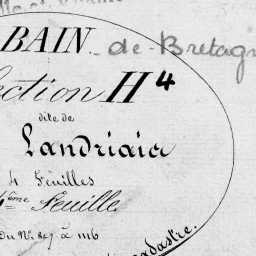 BAIN de-Bretagn
ection H4
dite de
Landriais
4 Feuilles
4ème Feuille
Du N°. 847 à 1116
cadastre.